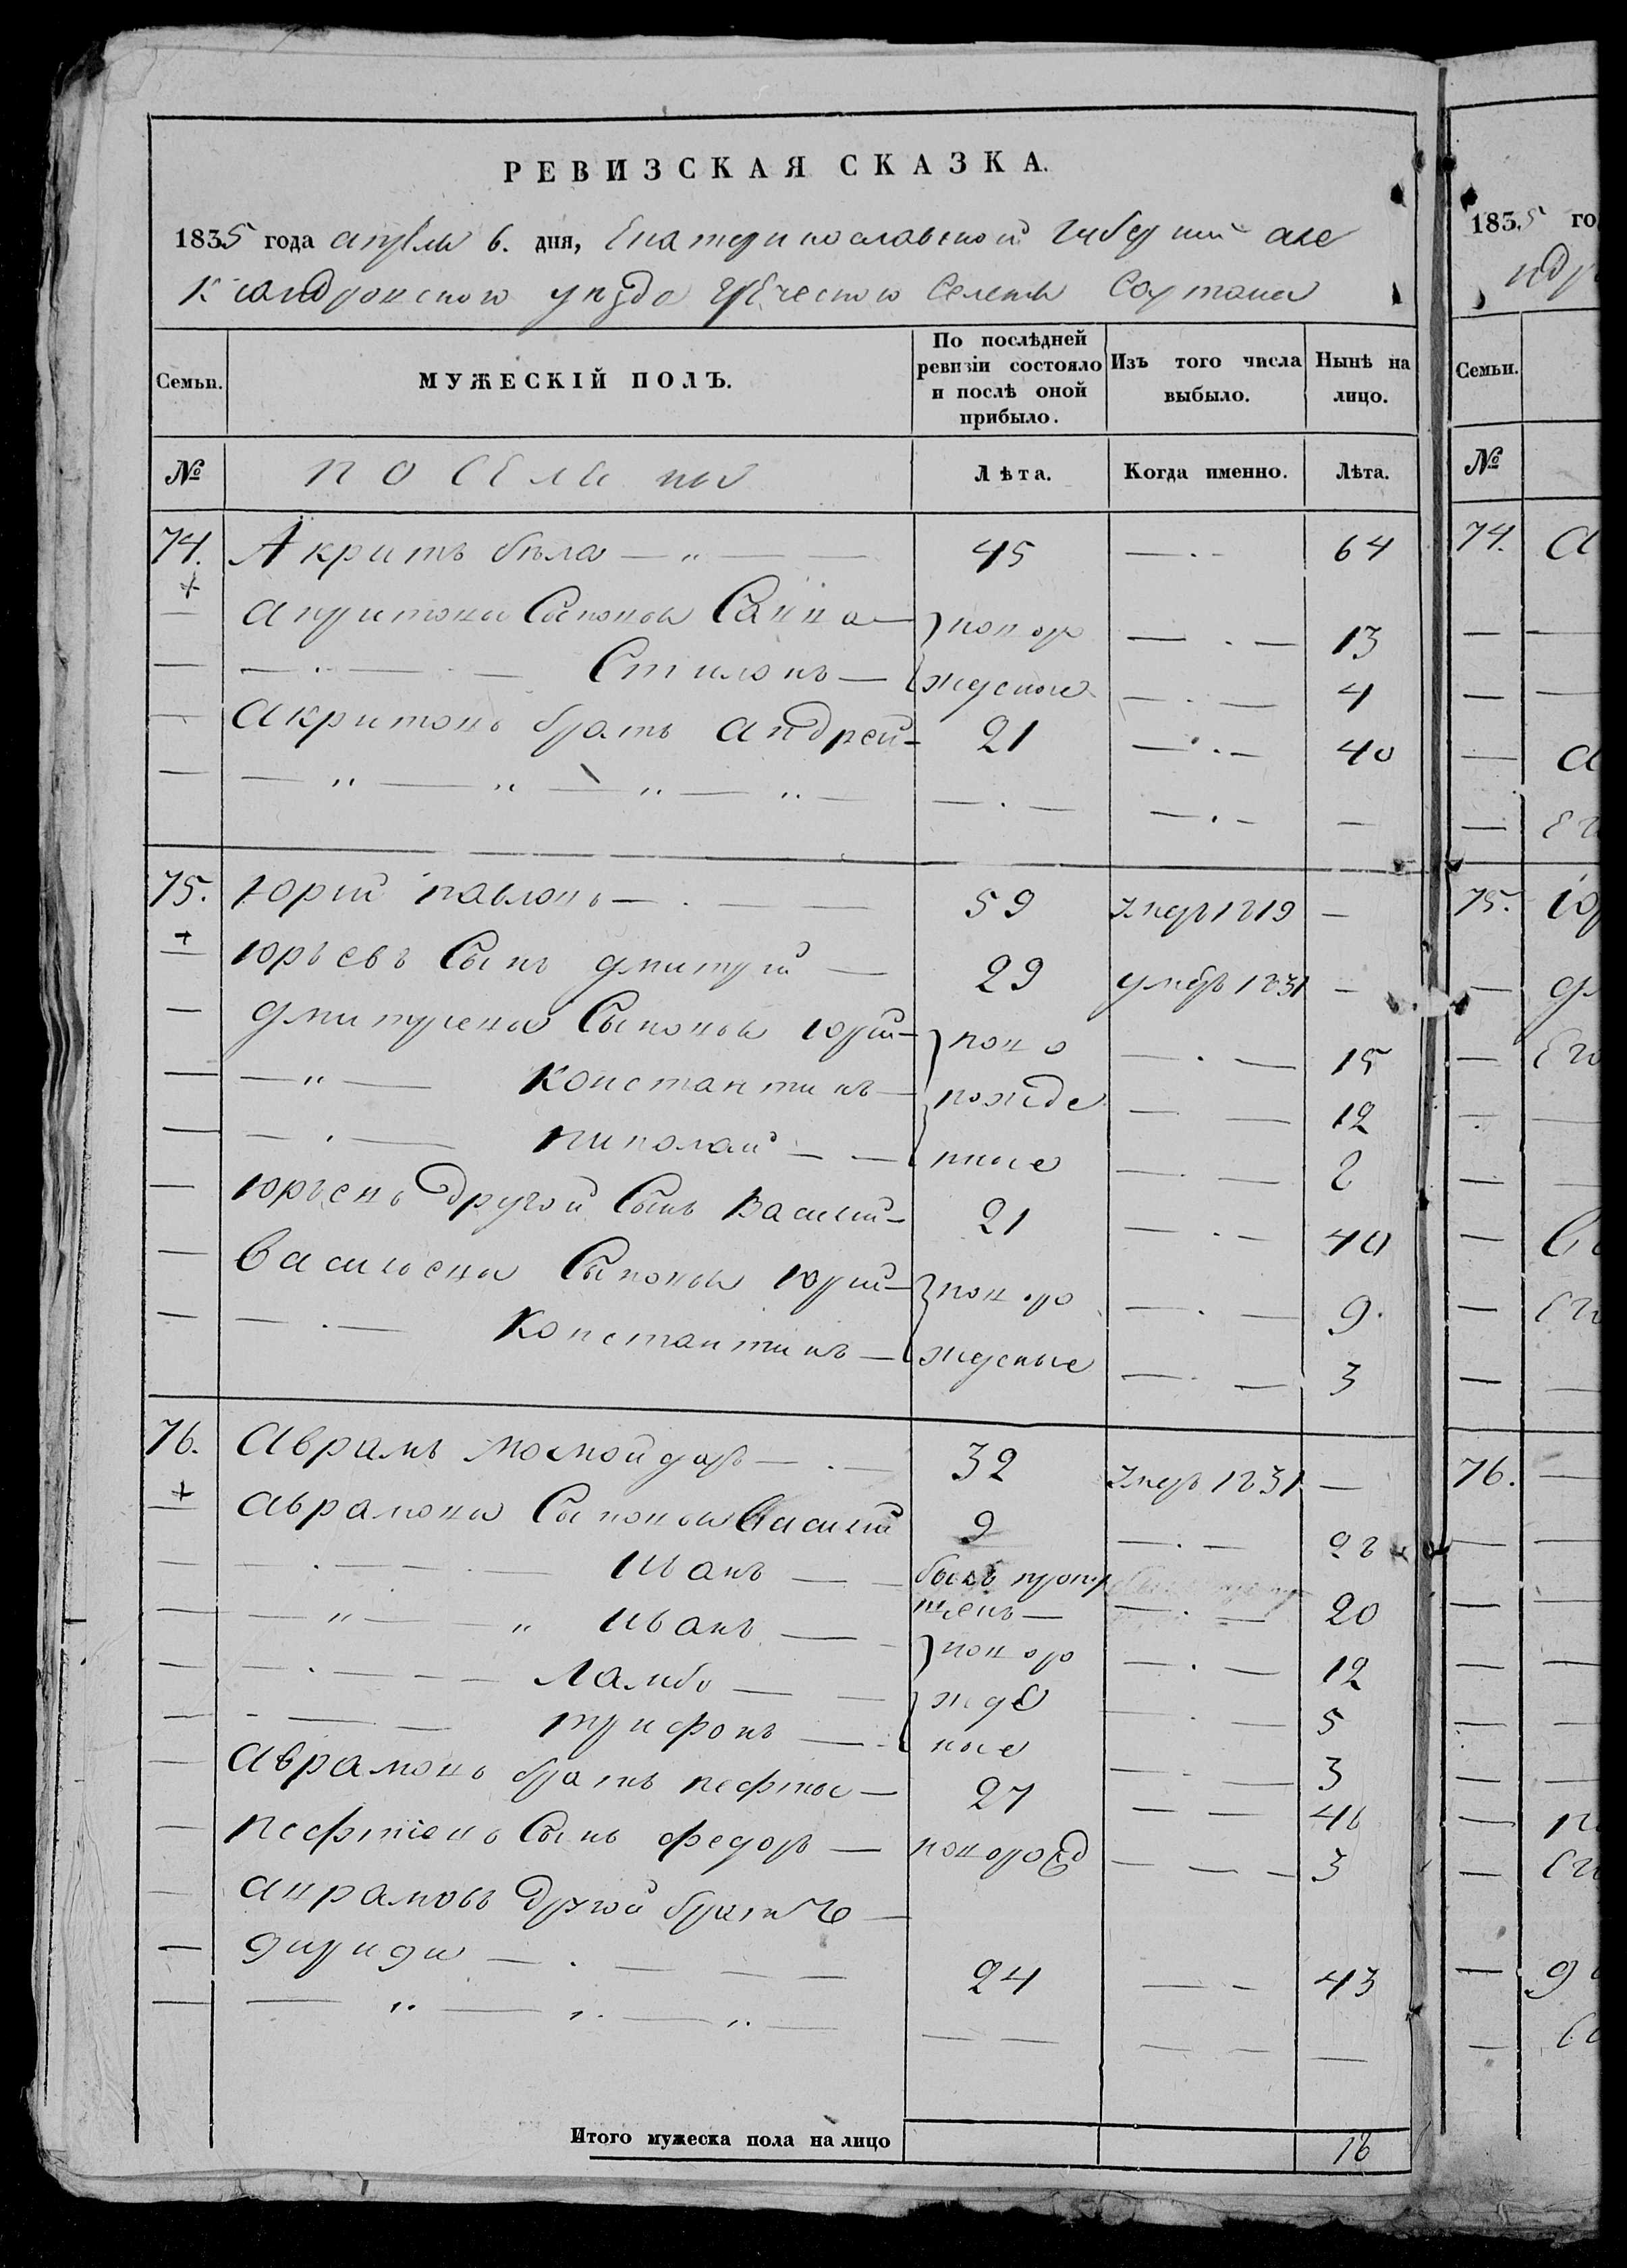 РЕВИЗСКАЯ СКАЗКА.
1835 года апреля 6. дня, Екатеринославской губернии але
ксандровского уезда греческого Селения Сартана
Семьи. МУЖЕСКІЙ ПОЛЪ. По послѣдней ревизіи состояло и послѣ оной прибыло. Изъ того числа выбыло. Нынѣ на лицо.
№ поселяны Лѣта. Когда именно. Лѣта.
74. Акритъ бѣла — 45 — 64
акритовы Сыновья Савва — новоро — 13
Стилонъ — жденые — 4
акритовъ братъ андрей — 21 — 40
75. Юрий павловъ — 59 1819 —
юрьевъ Сынъ дмитрій — 29 1831 —
дмитриевы Сыновья юрій — ново — 15
Константинъ — рожде — 12
николай — нные — 2
юрьевъ другой Сынъ Василий — 21 — 40
Васильевы Сыновья юрий — новоро — 9.
Константинъ — жденые — 3
76. аврамъ — 32 1831 —
аврамовы Сыновья Василий 9 — 28
иванъ — былъ пропу
щенъ — 20
иванъ — новоро — 12
Ламбо — жде — 5
трифонъ — ные — 3
аврамовъ братъ — 27 — 46
Сынъ федоръ — новорожд — 3
аврамовъ другой братъ —
24 — 43
Итого мужеска пола на лицо 16
1835 го
Семьи.
№
74. а
а
75. юр
76.